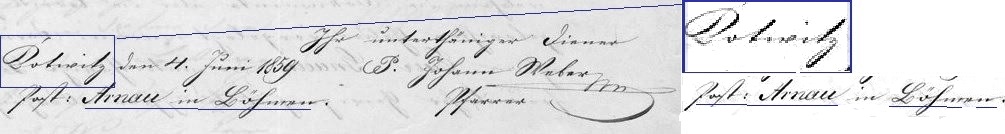 Ihr unterthäniger Diener
Kotwitz den 4. Juni 1859 P. Johann Weber
Post: Arnau in Böhmen. Pfarrer
Kotwitz
Post: Arnau in Böhmen.